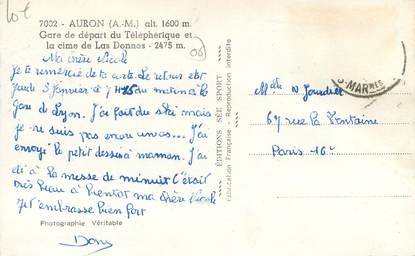 7002 - AURON (A.-M.) alt. 1600 m.
Gare de départ du Téléphérique et
la cime de Las Donnas - 2475 m.
Ma chère Nicole
je te remercie de ta carte. Le retour est
jeudi 5 janvier à 7 H 25 du matin à la
Gare de Lyon. J'ai fait du ski mais
je ne suis pas encore un as... J'ai
envoyé le petit dessin à maman. J'ai
été à la messe de minuit c'était
très beau à bientôt ma chère Nicole
je t'embrasse bien fort
Photographie Véritable
Dany
ÉDITIONS SÉE SPORT
Fabrication Française - Reproduction interdite
S-MARMES
Melle N Jourdier
67 rue La Fontaine
Paris 16e